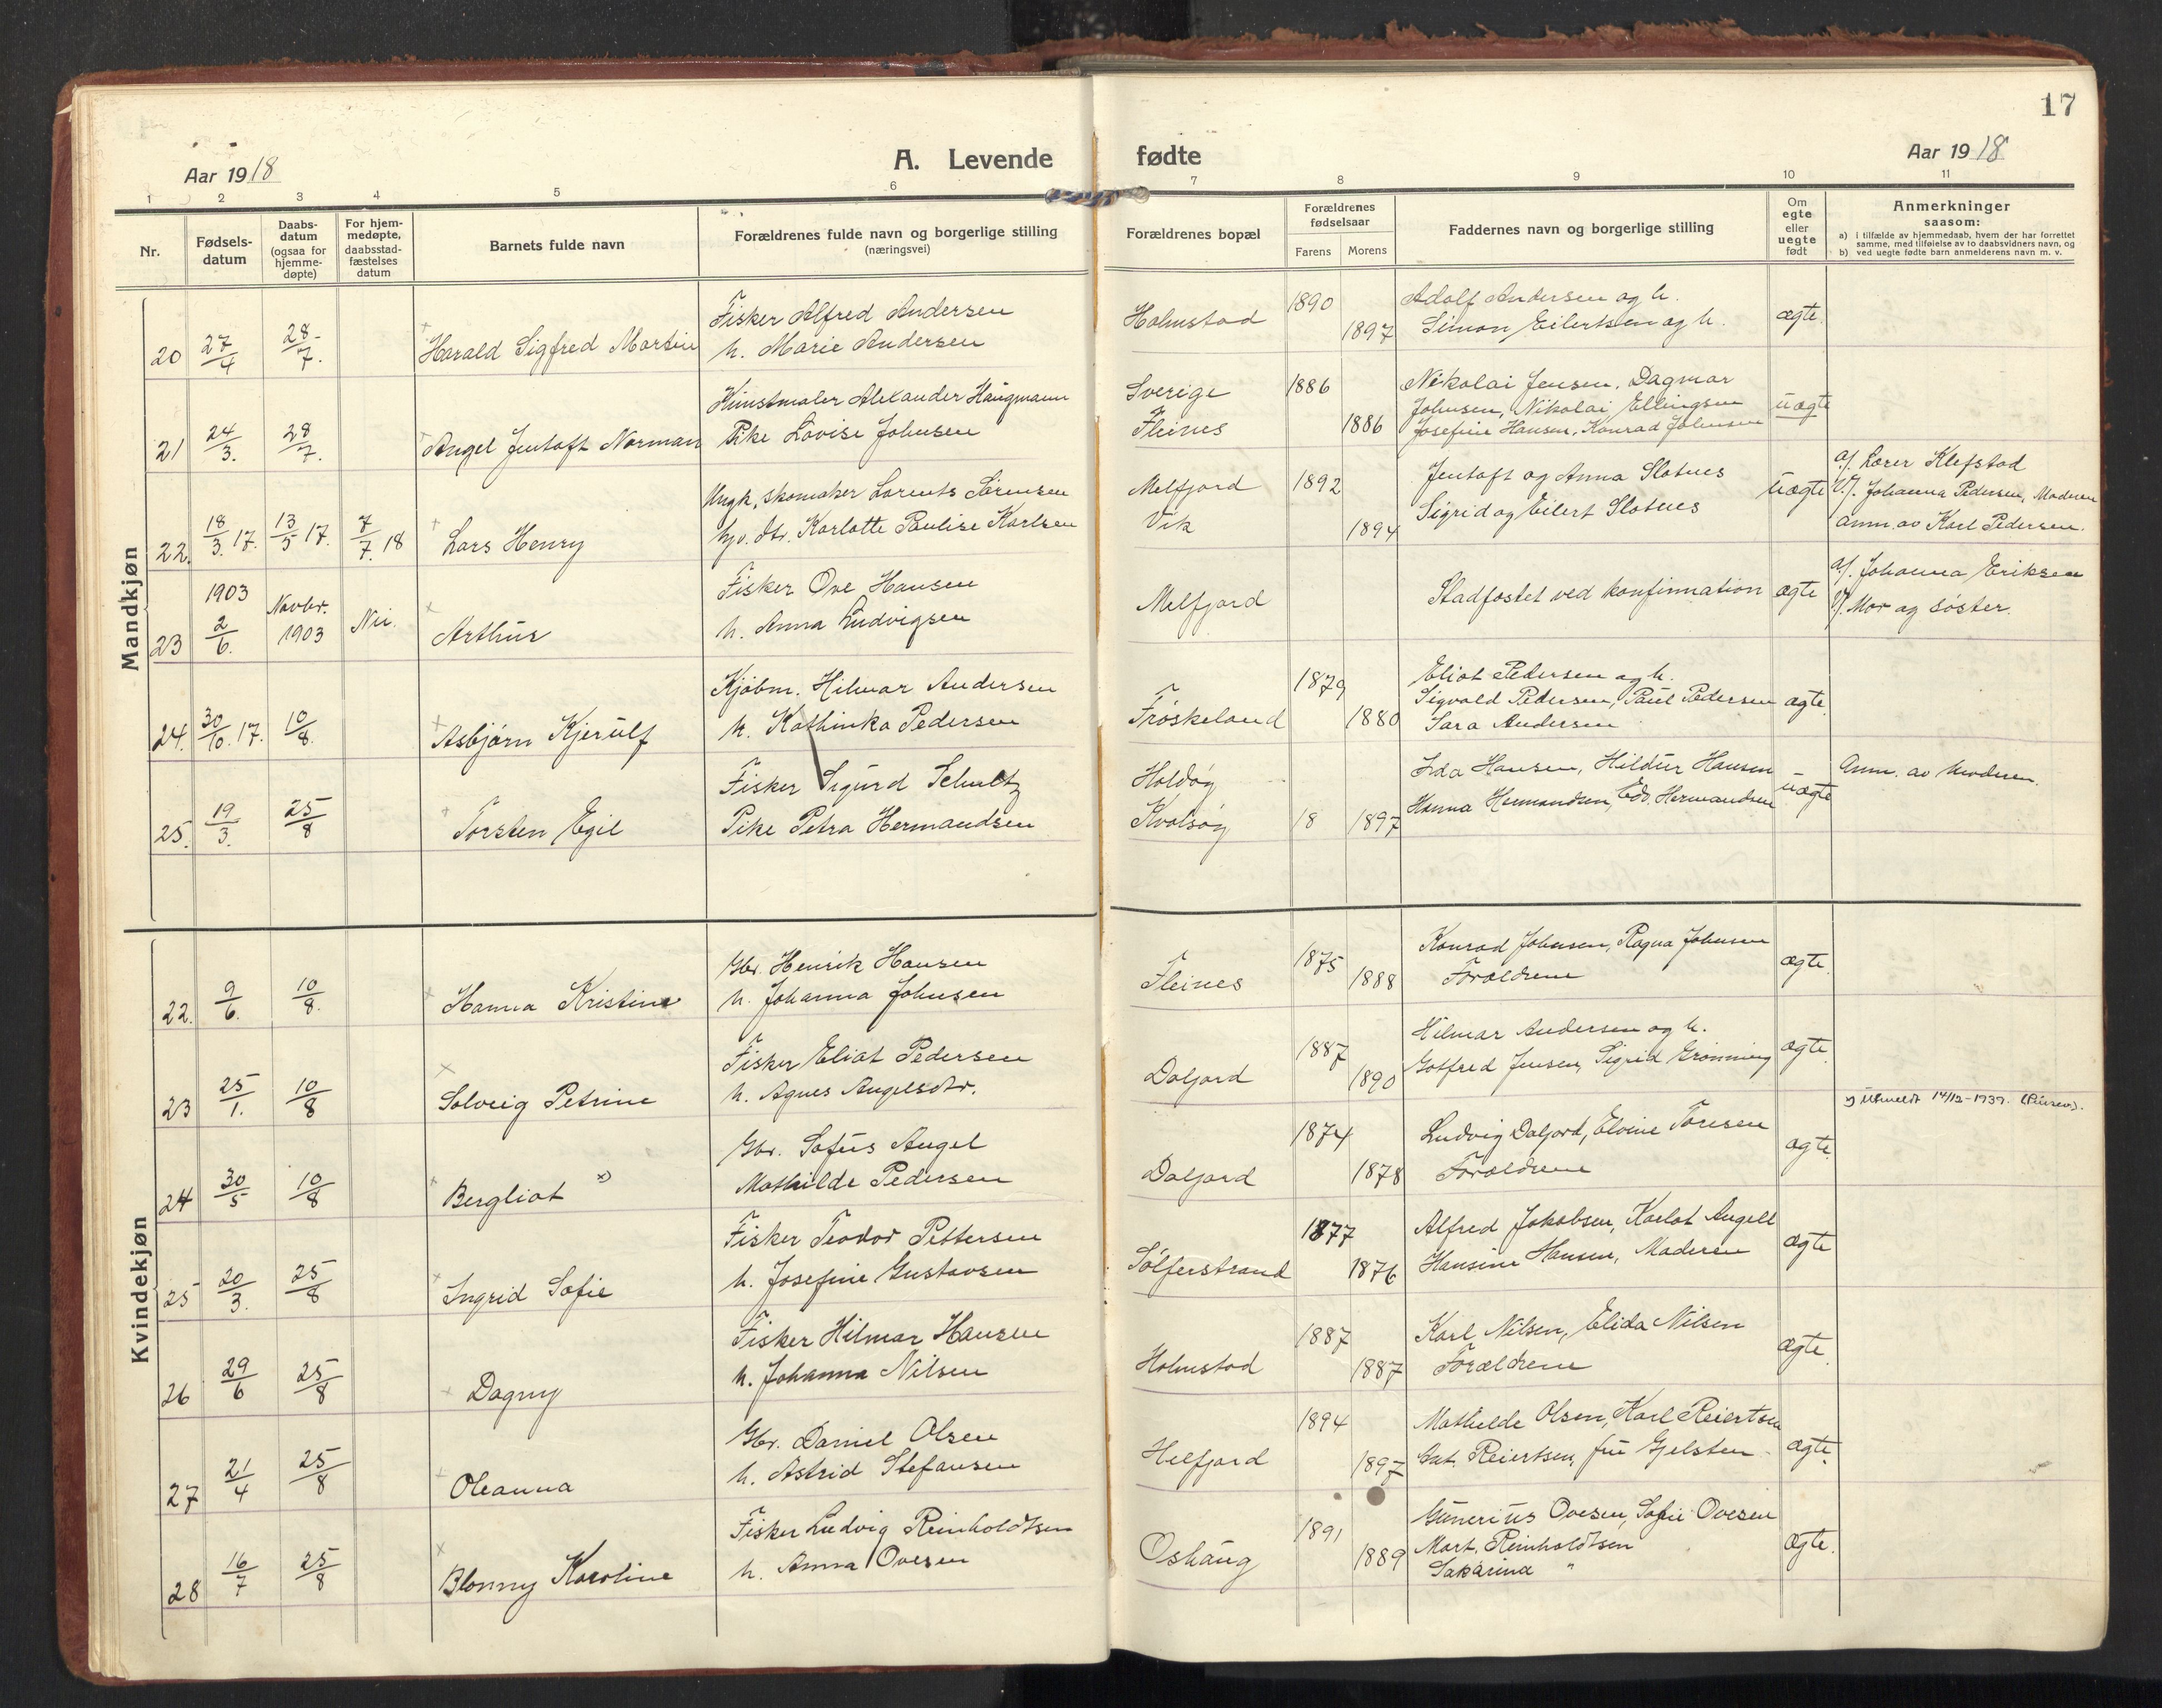 17
Aar 1918
A. Levende fødte
Aar 1918
1 2 3 4 5 6 7 8 9 10 11
Nr.
Fødsels-
datum
Daabs-
datum
(ogsaa for
hjemme-
døpte)
For hjem-
medøpte,
daabsstad-
fæstelses
datum
Barnets fulde navn
Forældrenes fulde navn og borgerlige stilling
(næringsvei)
Forældrenes bopæl
Forældrenes
fødselsaar
Farens Morens
Faddernes navn og borgerlige stilling
Om
egte
eller
uegte
født
Anmerkninger
saasom:
a) i tilfælde av hjemmedaab, hvem der har forrettet
samme, med tilføielse av to daabsvidners navn, og
b) ved uegte fødte barn anmelderens navn m. v.
Mandkjøn
20 27/4 28/7. Harald Sigfred Martin
Fisker Alfred Andersen
h. Marie Andersen
Holmstad
1890 1897
Adolf Andersen og h.
Simon Eilertsen og h.
ægte.
21 24/3. 28/7. Angel Jentoft Norman
Kunstmaler Alexander Haugmann
Pike Lovise Johnsen
Sverige
Fleines
1886 1886
Nikolai Jensen, Dagmar
Johnsen, Nikolai Ellingsen
Josefine Hansen, Konrad Johnsen
uægte
22. 18/3. 17. 13/5 17. 7/7. 18 Lars Henry
Ungk, skomaker Lorents Sørensen
hjv. dtr. Karlotte Pauline Karlsen
Melfjord
Vik
1892 1894
Jentoft og Anna Slotnes
Sigrid og Eilert Slotnes
uægte
a/. Lærer Klefstad
V/. Johanna Pedersen, Moderen
anm. av Karl Pedersen.
23 1903 2/6. Novbr. 1903 Nei. Arthur
Fisker Ove Hansen
h. Anna Ludvigsen
Melfjord
Stadfæstet ved konfirmation
ægte
a/. Johanna Eriksen
V/. Mor og søster.
24. 30/10. 17. 10/8. Asbjørn Kjerulf
Kjøbm. Hilmar Andersen
h. Kathinka Pedersen
Frøskeland
1879 1880
Eliot Pedersen og h.
Sigvald Pedersen, Paul Pedersen
Sara Andersen
ægte.
25. 19/3. 25/8 Torsten Egil
Fisker Sigurd Schultz
Pike Petra Hermandsen
Holdøy
Kvalsøy
18 1897
Ida Hansen, Hildur Hansen
Hanna Hermandsen, Edv. Hermandsen
uægte
Anm. av Moderen.
Kvindekjøn
22. 9/6. 10/8. Hanna Kristine
Gbr. Henrik Hansen
h. Johanna Johnsen
Fleines
1875 1888
Konrad Johnsen, Ragna Johnsen
Forældrene
ægte.
23 25/1. 10/8 Solveig Petrine
Fisker Eliot Pedersen
h. Agnes Angelsdtr.
Daljord
1887 1890
Hilmar Andersen og h.
Gotfred Jensen, Sigrid Grønning
ægte.
24 30/5 10/8 Bergliot x)
Gbr. Sofus Angel
Mathilde Pedersen
Daljord
1874 1878
Ludvig Daljord, Elvine Toresen
Forældrene
ægte.
x) Utmeldt 14/12-1937. (Pinsev.).
25 20/3. 25/8 Ingrid Sofie
Fisker Teodor Pettersen
h. Josefine Gustavsen
Sølferstrand
1877 1876
Alfred Jakobsen, Karlot Angell
Hansine Hansen, Moderen
ægte
26 29/6 25/8 Dagny
Fisker Hilmar Hansen
h. Johanna Nilsen
Holmstad
1887 1887
Karl Nilsen, Elida Nilsen
Forældrene
ægte.
27 21/4 25/8 Oleanna
Gbr. Daniel Olsen
h. Astrid Stefansen
Helfjord
1894 1897
Mathilde Olsen, Karl Reiertsen
Ant. Reiertsen, fru Gjelsten
ægte.
28 16/7 25/8 Blonny Karoline
Fisker Ludvig Reinholdtsen
h. Anna Ovesen
Oshaug
1891 1889
Gunerius Ovesen, Sofie Ovesen
Mart. Reinholdtsen
Sakarina "
ægte.